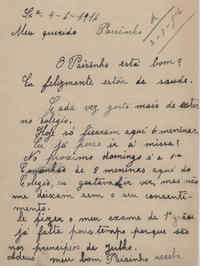 4-6-1916
Meu querido Paisinho
O Paisinho está bom?
Eu felizmente estou de saude.
Cada vez gosto mais de estar
no colegio.
Hoje só ficaram aqui 6 meninas
Eu já hoje ir á missa!
No proximo domingo é a 1ª
Comunhão de 8 meninas aqui do
Colegio, eu gostava de ver, mas não
me deixam sem o seu consenti-
mento.
fazer o meu exame de 1º grau
já falta pouco tempo porque são
nos principios de Julho.
Adeus meu bom Paisinho aceite